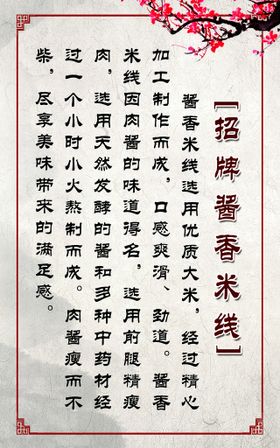 【招牌酱香米线】
酱香米线选用优质大米，经过精心
加工制作而成，口感爽滑、劲道。酱香
米线因肉酱的味道得名，选用前腿精瘦
肉，选用天然发酵的酱和多种中药材经
过一个小时小火熬制而成。肉酱瘦而不
柴，尽享美味带来的满足感。